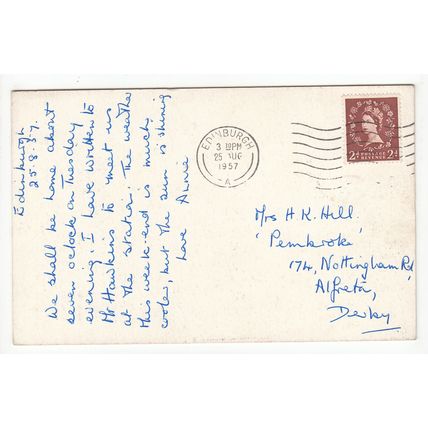 Edinburgh
25.8.57.
We shall be home about
seven oclock on Tuesday
evening. I have written to
Mr Hawkins to meet us
at the station. The weather
this week-end is much
cooler, but the sun is shining
Love Annie
EDINBURGH
3 30PM
25 AUG
1957
A
2D POSTAGE REVENUE 2D
Mrs H K. Hill
'Pembroke'
174, Nottingham Rd,
Alfreton,
Derby